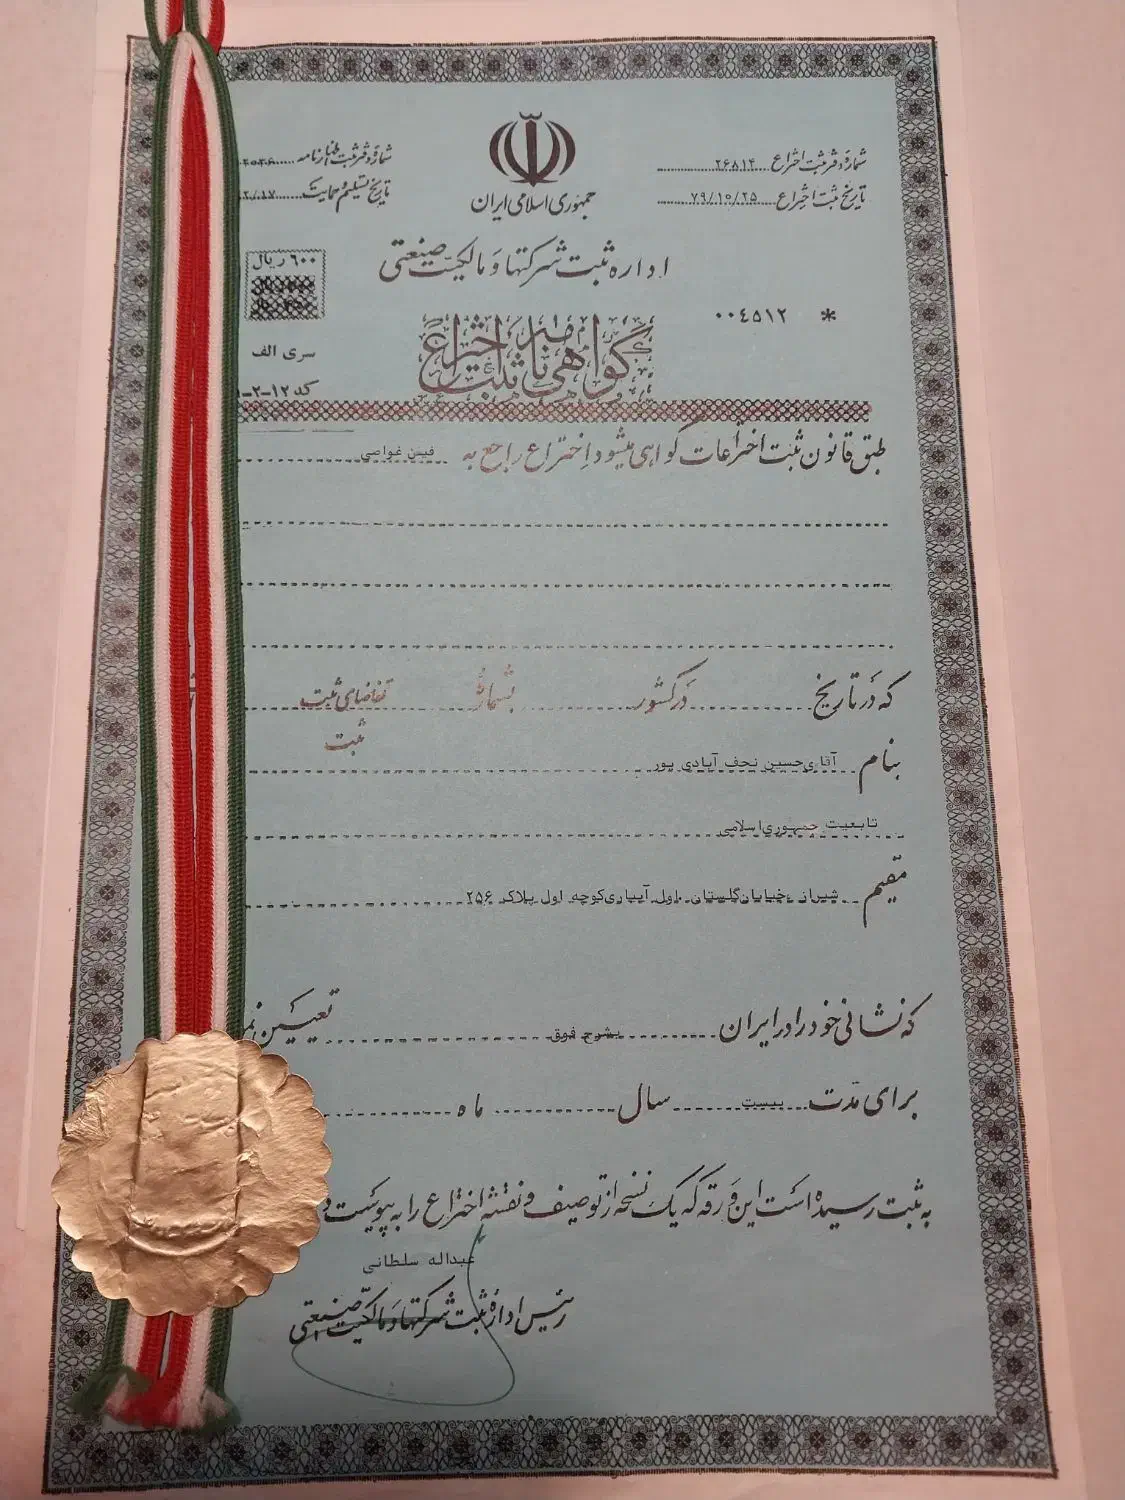 جمهوری اسلامی ایران
شماره دفتر ثبت اختراع ۲۶۸۱۴
تاریخ ثبت اختراع ۷۹/۱۰/۲۵
شماره دفتر ثبت اظهارنامه
تاریخ تسلیم و حمایت ۲/۱۷
اداره ثبت شرکتها و مالکیت صنعتی
۶۰۰ ریال
* ۰۰۴۵۱۲
گواهی نامه ثبت اختراع
سری الف
کد ۱۲-۲-۱
طبق قانون ثبت اختراعات گواهی میشود اختراع راجع به فین غواصی
که در تاریخ در کشور بشماره تقاضای ثبت
ثبت
بنام آقای حسین نجف آبادی پور
تابعیت جمهوری اسلامی
مقیم شیراز خیابان گلستان اول آبیاری کوچه اول پلاک ۲۵۶
که نشانی خود را در ایران بشرح فوق تعیین
برای مدت بیست سال ماه
به ثبت رسیده است این ورقه که یک نسخه از توصیف و نقشه اختراع را به پیوست
عبداله سلطانی
رئیس اداره ثبت شرکتها و مالکیت صنعتی